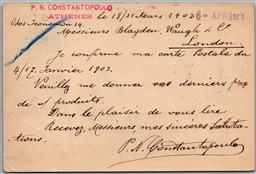 P. N. CONSTANTOPOULO
ATHÈNES
le 18/31 Mars 1903
6 - APR
Messieurs Blagden, Waugh & Co
London
Je confirme ma carte Postale du
4/17. Janvier 1903.
Veuillez me donner vos derniers prix
de produits.
Dans le plaisir de vous lire
Recevez, Messieurs, mes sincères Saluta-
tions.
P. N. Constantopoulo